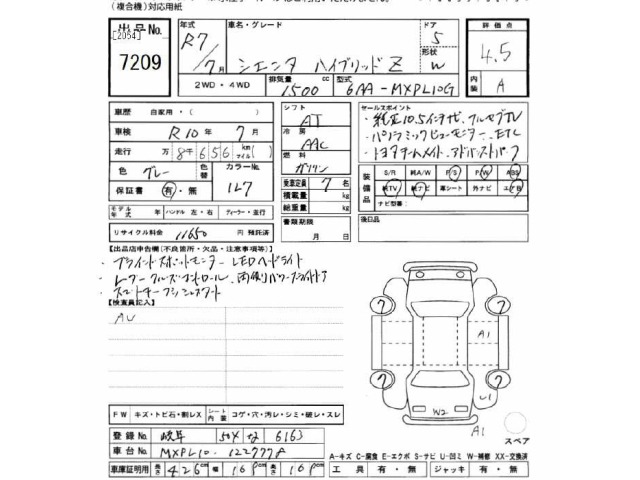 (複合機)対応用紙
出品No. 年式 車名・グレード ドア 評価点
[2054] R7 5
7209 /7月 シエンタ ハイブリッド Z 形状 W 4.5
2WD・4WD 排気量 1500 cc 型式 6AA-MXPL10G 内装 A
車歴 自家用・( ) シフト AT セールスポイント
車検 R10年 7月 冷房 AAC ・純正10.5インチナビ、フルセグTV
走行 万 8千656 km マイル ( ) 燃料 ガソリン ・パノラミックビューモニター、ETC
色 グレー 色替 カラーNo. 1L7 ・トヨタチームメイト、アドバンストパーク
保証書 有・無 乗車定員 7名
積載量 kg
総重量 kg
装備品 S/R 純A/W P/S P/W ABS
純TV 純ナビ 革シート 外ナビ エアB
ナビ型番( )
モデル年式 年 ハンドル 左・右 ディーラー・並行 書類期限 月 日 後日品
リサイクル料金 11650 円 預託済
【出品店申告欄(不良箇所・欠品・注意事項等)】
・ブラインドスポットモニター LEDヘッドライト
・レーダークルーズコントロール、両側パワースライドドア
・スマートキープッシュスタート
【検査員記入】
A1
U1
W2
A1
スペア
FW キズ・トビ石・割レX シート内装 コゲ・穴・汚レ・シミ・破レ・スレ
登録No. 岐阜 504 な 6163
車台No. MXPL10-1227778 A-キズ C-腐食 E-エクボ S-サビ U-凹ミ W-補修 XX-交換済
車庫証明用 長さ 426cm 幅 169 高さ 169 工具 有・無 ジャッキ 有・無